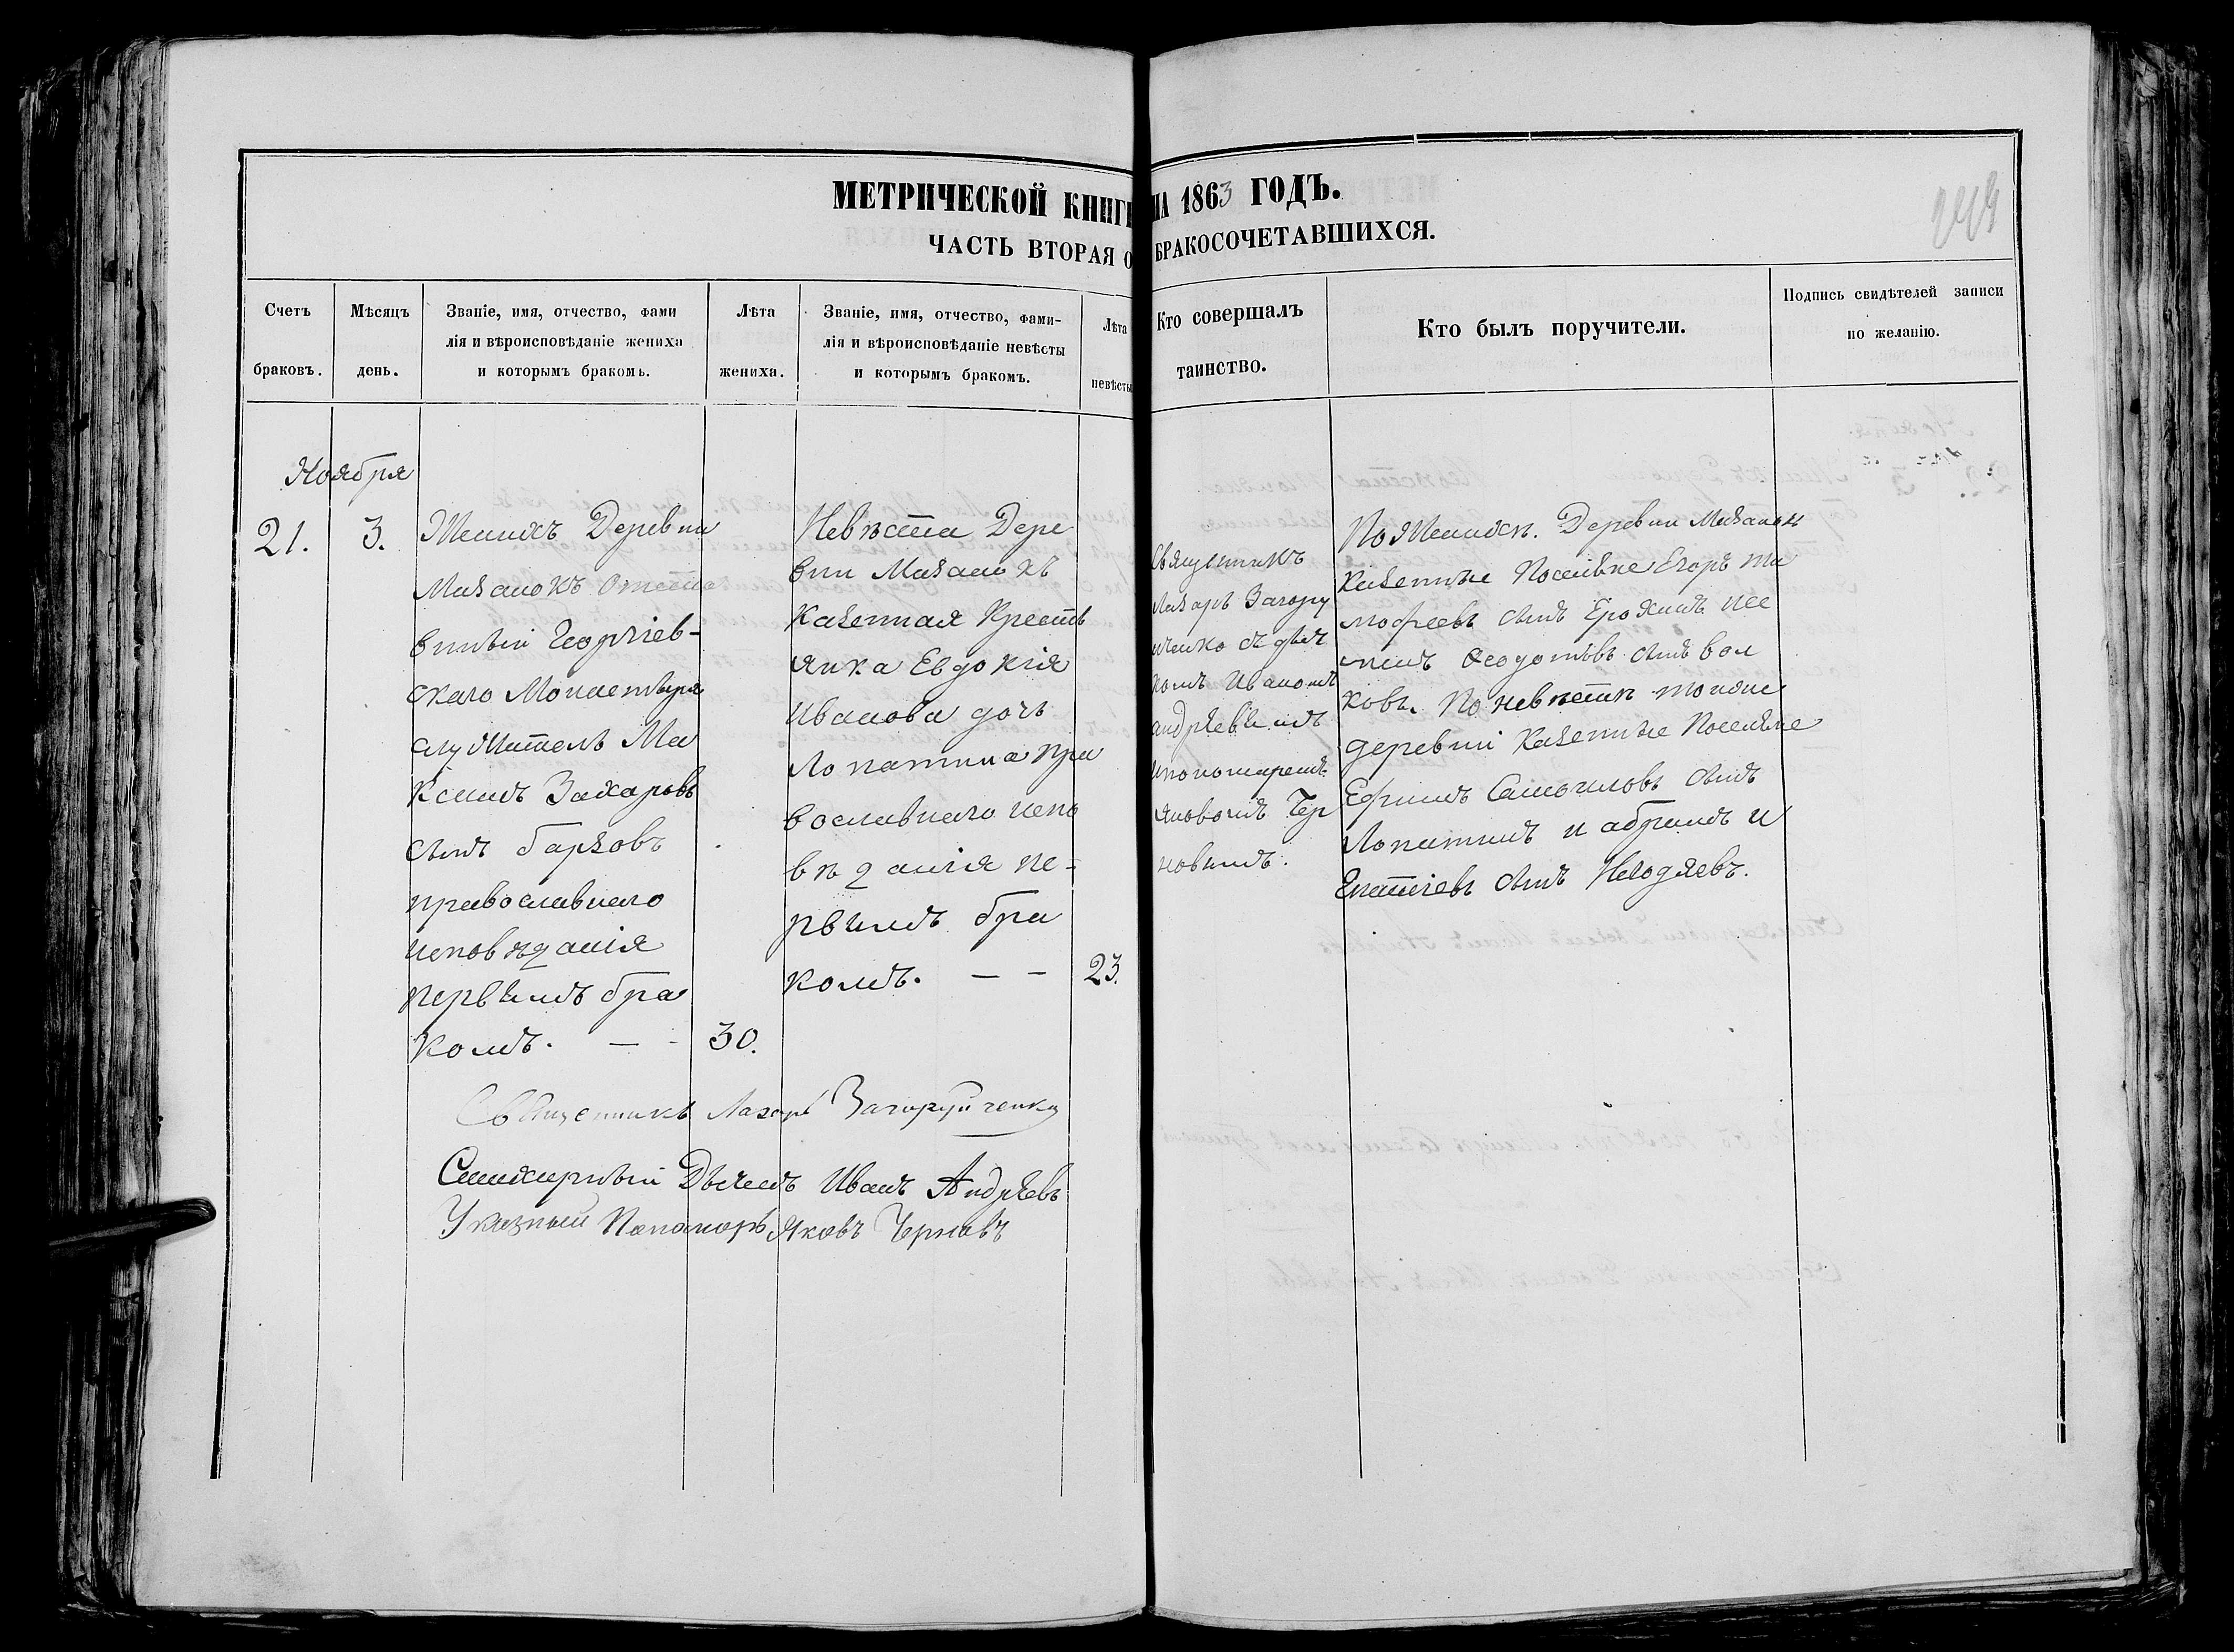 МЕТРИЧЕСКОЙ КНИГИ НА 1863 ГОДЪ.
ЧАСТЬ ВТОРАЯ О БРАКОСОЧЕТАВШИХСЯ.
Счетъ
браковъ.
Мѣсяцъ
день.
Званіе, имя, отчество, фами
лія и вѣроисповѣданіе жениха
и которымъ бракомъ.
Лѣта
жениха.
Званіе, имя, отчество, фами-
лія и вѣроисповѣданіе невѣсты
и которымъ бракомъ.
Лѣта
невѣсты
Кто совершалъ
таинство.
Кто былъ поручители.
Подпись свидѣтелей записи
по желанію.
Ноября
21.
3.
Женихъ Деревни
Мазанокъ Отста
вный Георгіев-
скаго Монастыря
служитель Ма
ксимъ Захаровъ
сынъ Барковъ
православнаго
исповѣданія
первымъ бра
комъ. — -
30.
Невѣста Дере
вни Мазанокъ
Казенная Кресть
янка Евдокія
Иванова дочь
Лопатина пра
вославнаго испо
вѣданія пе-
рвымъ бра
комъ. — —
23.
Священникъ
Лазарь Загору
ченко съ дьяч
комъ Иваномъ
Андреевымъ
и пономаремъ
Яковомъ Чер
новымъ.
По Женихѣ. Деревни Мазанокъ
Казенные Поселяне Егоръ Ти
мофеевъ сынъ Ерохинъ и
Феодотовъ сынъ Вол
ковъ. По невѣстѣ тойже
деревни Казенные Поселяне
Ефимъ Самоиловъ сынъ
Лопатинъ и Абрамъ И
гнатіевъ сынъ Негодяевъ.
Священникъ Лазарь Загоруйченко
Дьячекъ Иванъ Андреевъ
Указный Пономарь Яковъ Черновъ